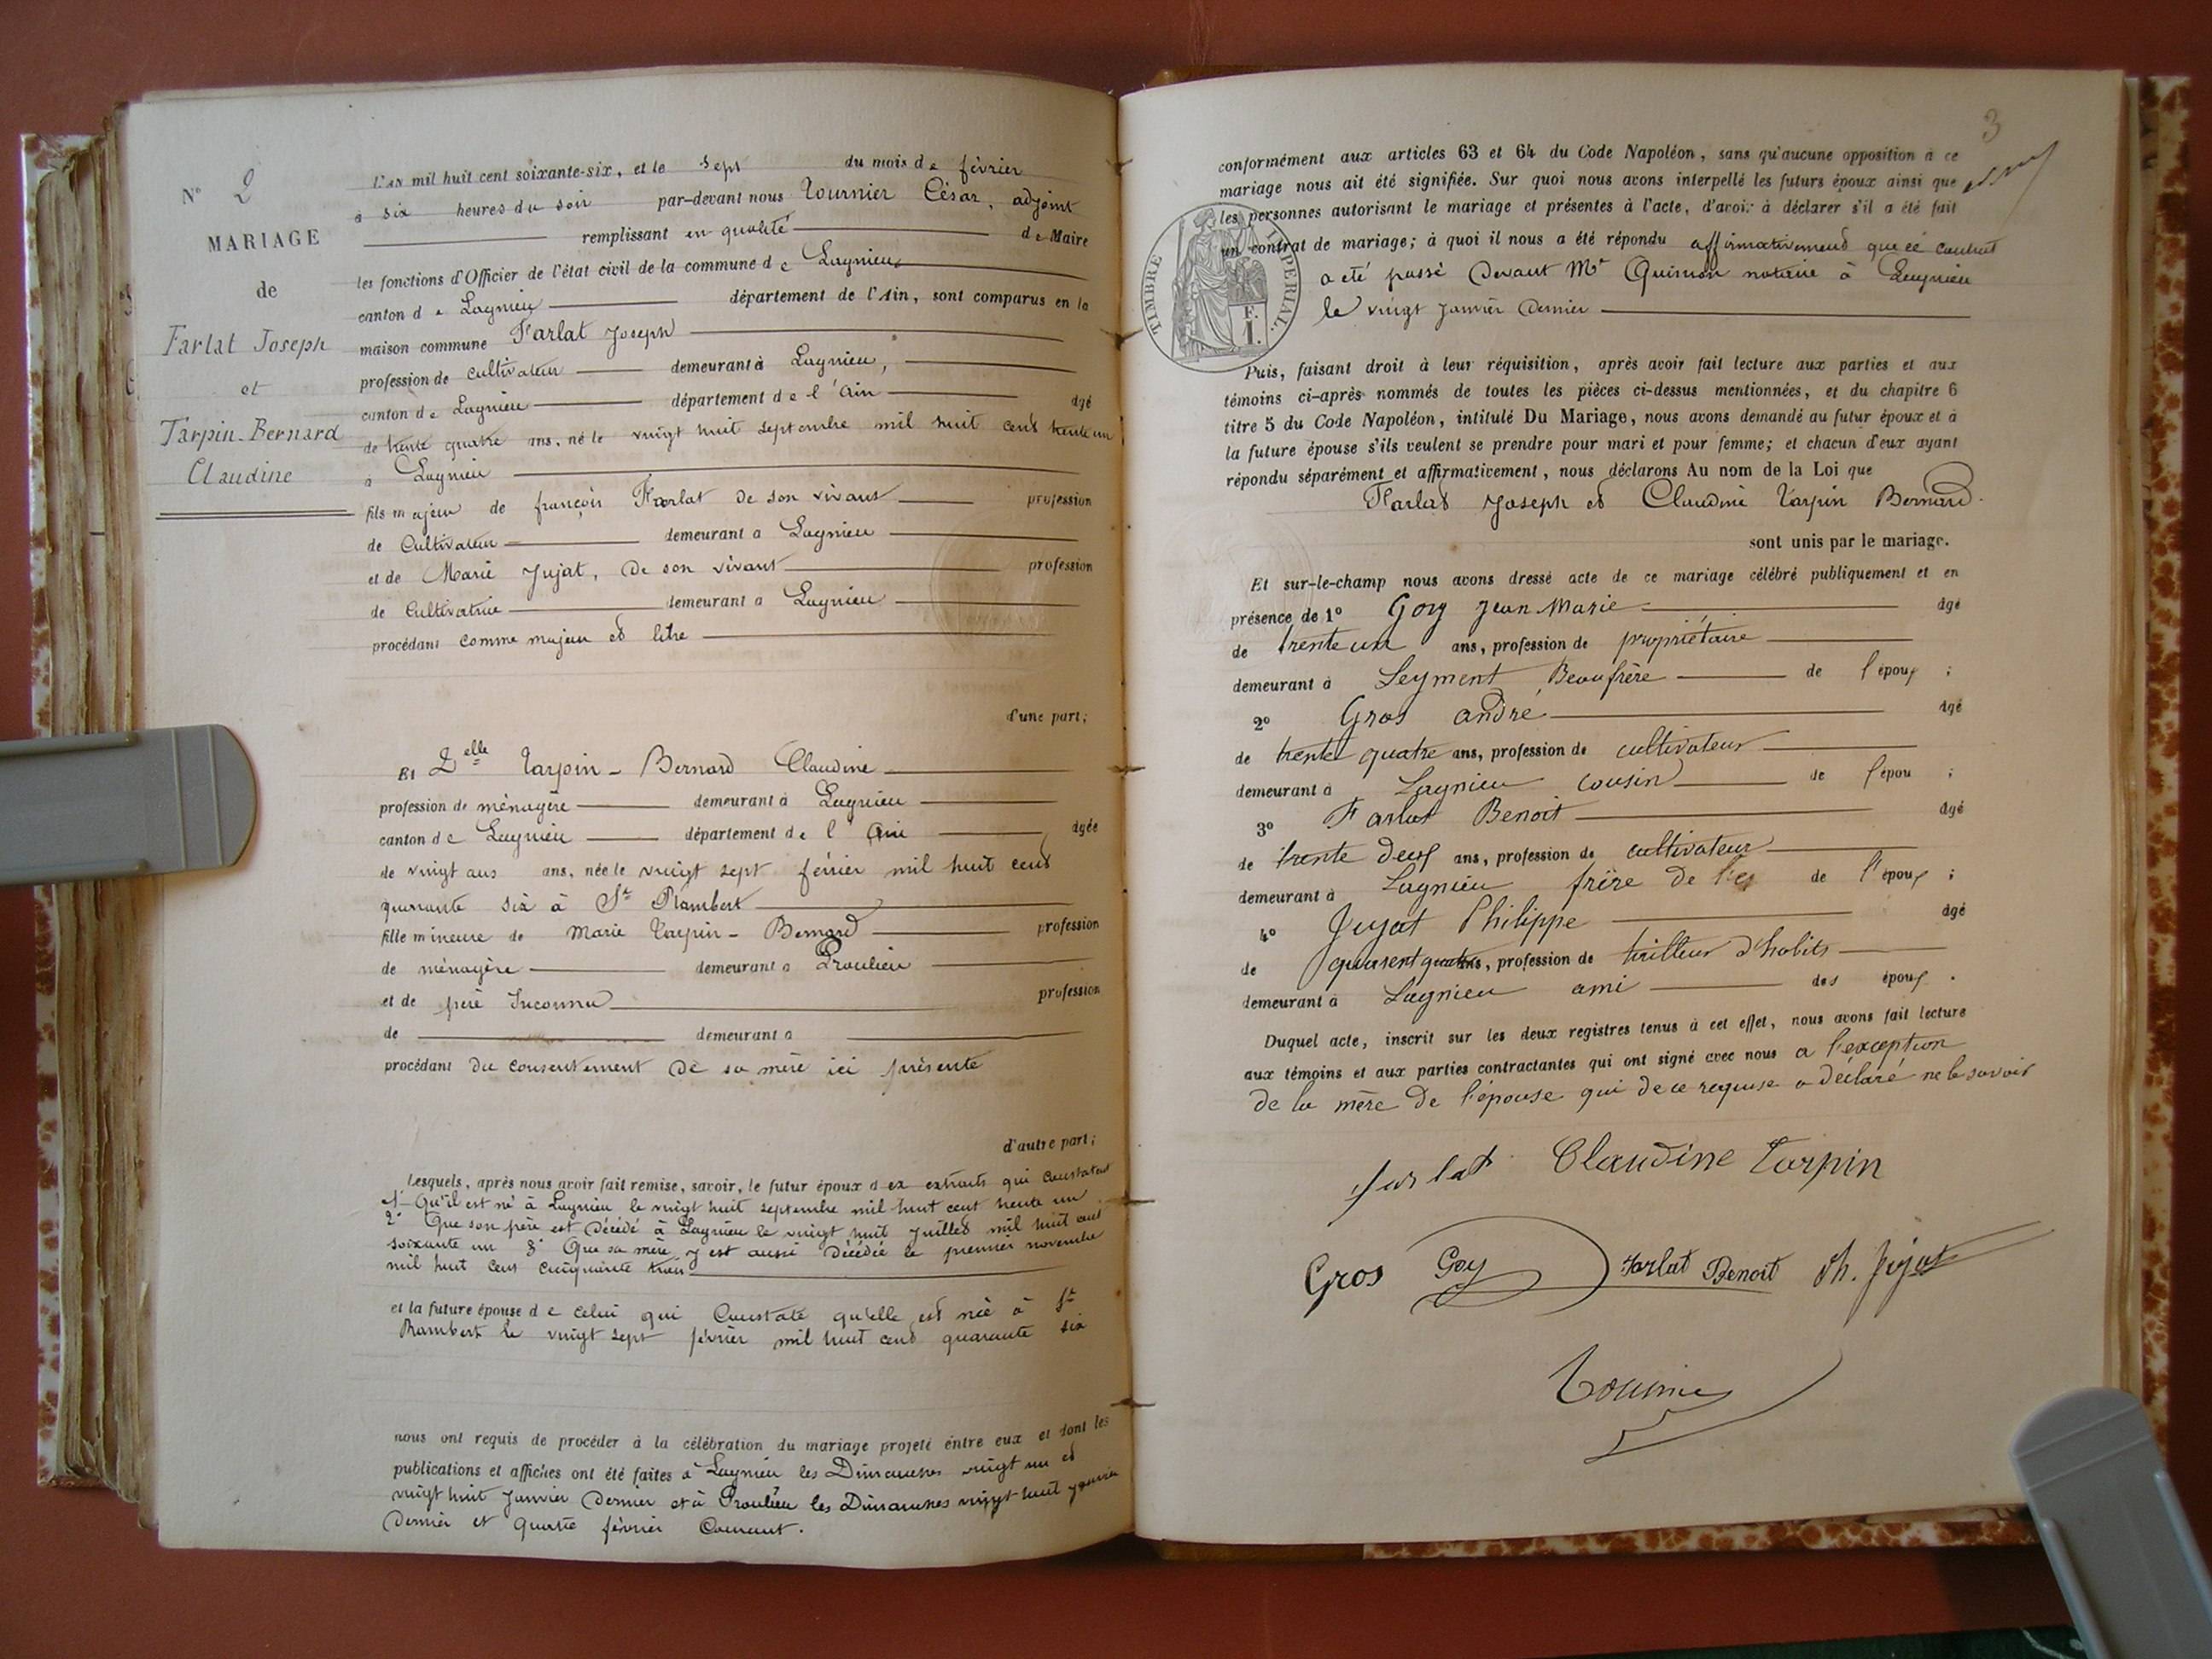 N° 2
MARIAGE
de
Farlat Joseph
et
Tarpin-Bernard
Claudine
L'AN mil huit cent soixante-six, et le sept du mois de février
à six heures du soir par-devant nous Tournier César, adjoint
remplissant en qualité de Maire
les fonctions d'Officier de l'état civil de la commune de Lagnieu
canton de Lagnieu département de l'Ain, sont comparus en la
maison commune Farlat Joseph
profession de cultivateur demeurant à Lagnieu,
canton de Lagnieu département de l'Ain âgé
de trente quatre ans, né le vingt huit septembre mil huit cent trente un
à Lagnieu
fils majeur de françois Farlat de son vivant profession
de Cultivateur demeurant à Lagnieu
et de Marie Jujat, de son vivant profession
de Cultivatrice demeurant à Lagnieu
procédant comme majeur et libre
d'une part;
Et Delle Tarpin-Bernard Claudine
profession de ménagère demeurant à Lagnieu
canton de Lagnieu département de l'Ain âgée
de vingt ans ans, née le vingt sept février mil huit cent
quarante six à St Rambert
fille mineure de Marie Tarpin-Bernard profession
de ménagère demeurant à Proulieu
et de père Inconnu profession
de demeurant à
procédant du consentement de sa mère ici présente
d'autre part;
Lesquels, après nous avoir fait remise, savoir, le futur époux d ex extraits qui constatent
1° Qu'il est né à Lagnieu le vingt huit septembre mil huit cent trente un
2° Que son père est décédé à Lagnieu le vingt huit juillet mil huit cent
soixante un 3° Que sa mère y est aussi décédée le premier novembre
mil huit cent cinquante trois
et la future épouse de celui qui constate qu'elle est née à St
Rambert le vingt sept février mil huit cent quarante six
nous ont requis de procéder à la célébration du mariage projeté entre eux et dont les
publications et affiches ont été faites à Lagnieu les Dimanches vingt un et
vingt huit Janvier dernier et à Proulieu les Dimanches vingt huit janvier
dernier et quatre février Courant.
3
conformément aux articles 63 et 64 du Code Napoléon, sans qu'aucune opposition à ce
mariage nous ait été signifiée. Sur quoi nous avons interpellé les futurs époux ainsi que
les personnes autorisant le mariage et présentes à l'acte, d'avoir à déclarer s'il a été fait
un contrat de mariage; à quoi il nous a été répondu affirmativement que ce contrat
a été passé devant Mr Quinson notaire à Lagnieu
le vingt Janvier dernier
TIMBRE IMPERIAL.
F.
1.
Puis, faisant droit à leur réquisition, après avoir fait lecture aux parties et aux
témoins ci-après nommés de toutes les pièces ci-dessus mentionnées, et du chapitre 6
titre 5 du Code Napoléon, intitulé Du Mariage, nous avons demandé au futur époux et à
la future épouse s'ils veulent se prendre pour mari et pour femme; et chacun d'eux ayant
répondu séparément et affirmativement, nous déclarons Au nom de la Loi que
Farlat Joseph et Claudine Tarpin Bernard
sont unis par le mariage.
Et sur-le-champ nous avons dressé acte de ce mariage célébré publiquement et en
présence de 1° Goy Jean-Marie âgé
de trente un ans, profession de propriétaire
demeurant à Leyment Beaufrère de l'époux ;
2° Gros andré âgé
de trente quatre ans, profession de cultivateur
demeurant à Lagnieu cousin de l'épou ;
3° Farlat Benoit âgé
de trente deux ans, profession de cultivateur
demeurant à Lagnieu frère de l'ep de l'époux ;
4° Jujat Philippe âgé
de quarent quatre ans, profession de tailleur d'habits
demeurant à Lagnieu ami des époux .
Duquel acte, inscrit sur les deux registres tenus à cet effet, nous avons fait lecture
aux témoins et aux parties contractantes qui ont signé avec nous a l'exception
de la mère de l'épouse qui de ce requise a déclaré ne le savoir
farlat Claudine Tarpin
Gros Goy farlat Benoit Ph. Jujat
Tournier